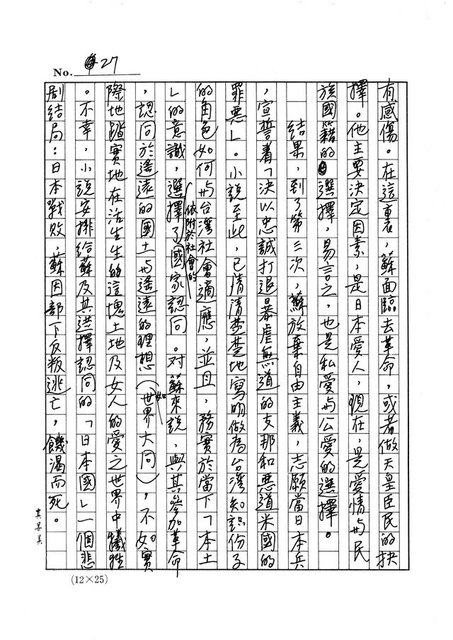 No. 27
有感傷。在這裏，蘇面臨去革命，或者做天皇臣民的抉
擇。他主要決定因素，是日本愛人，現在，是愛情與民
族國籍的選擇，易言之，也是私愛與公愛的選擇。
結果，到了第三次，蘇放棄自由主義，志願當日本兵
，宣誓着「決以忠誠打退暴虐無道的支那和惡道米國的
罪惡」。小說至此，已清清楚楚地寫明做為台灣知識份子
的角色如何與台灣社會適應，並且，務實於當下「本土
」的意識，選擇了依附於社會的國家認同。對蘇來說，與其參加革命
，認同於遙遠的國土與遙遠的理想（世界大同），不如實
際地踏實地在活生生的這塊土地及女人的愛之世界中犧牲
。不幸，小說安排給蘇及其選擇認同的「日本國」一個悲
劇結局：日本戰敗，蘇因部下反叛逃亡，饑渴而死。
(12×25)